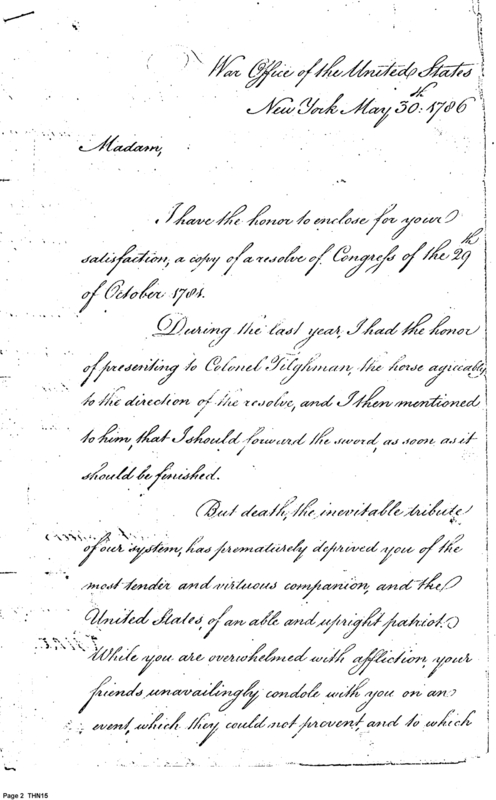 War Office of the United States
New York May 30.th 1786
Madam,
I have the honor to enclose for your
satisfaction, a copy of a resolve of Congress of the 29th
of October 1781.
During the last year, I had the honor
of presenting to Colonel Tilghman, the horse agreeably
to the direction of the resolve, and I then mentioned
to him, that I should forward the sword, as soon as it
should be finished.
But death, the inevitable tribute
of our system, has prematurely deprived you of the
most tender and virtuous companion, and the
United States, of an able and upright patriot.
While you are overwhelmed with affliction, your
friends unavailingly condole with you on an
event, which they could not prevent, and to which
Page 2 THN15